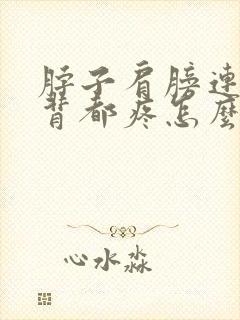 脖子肩膀连
背都疼怎麼
心水淼